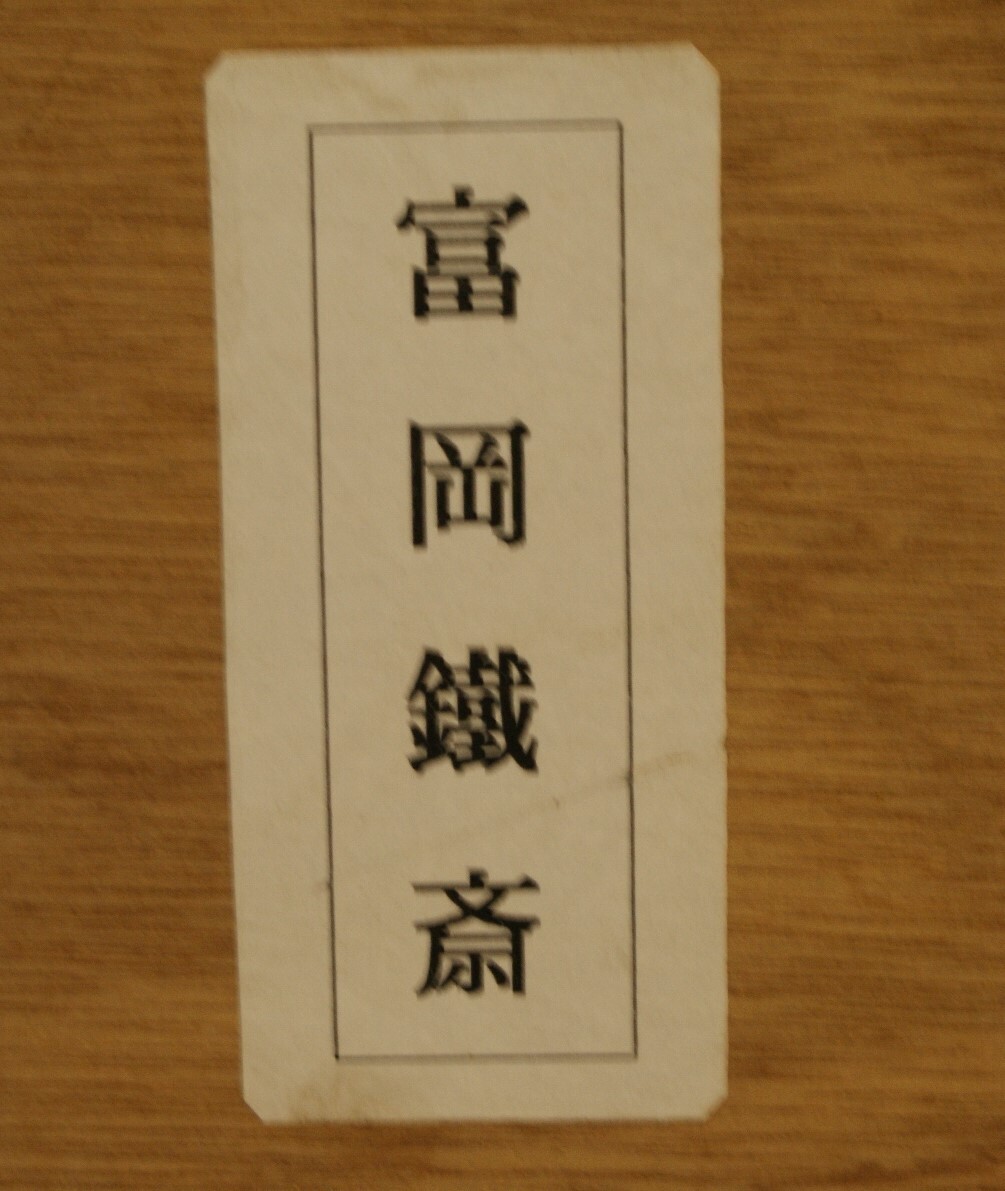 富岡鐵斎